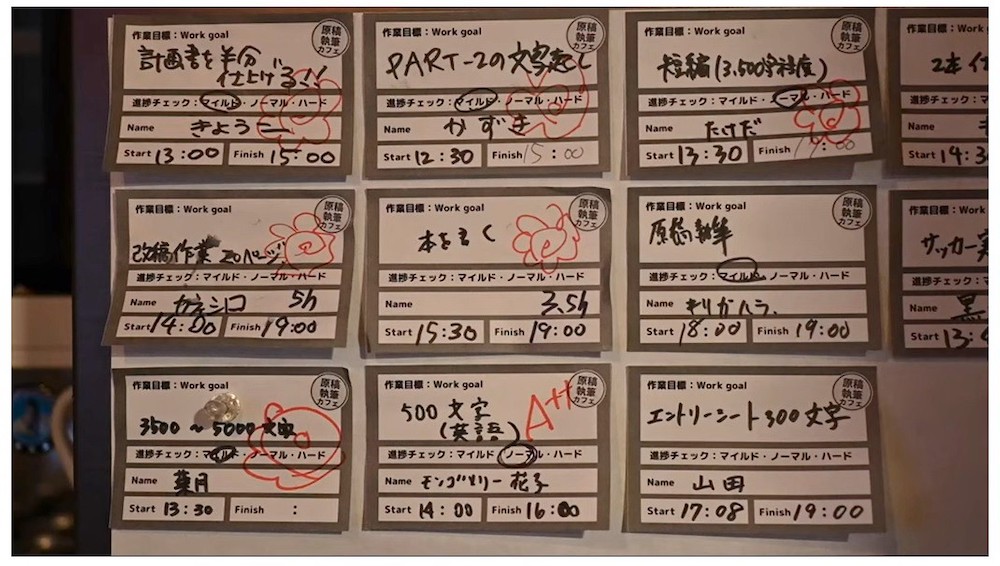 作業目標：Work goal
原稿
執筆
カフェ
計画書を半分
仕上げる!!
進捗チェック：マイルド・ノーマル・ハード
Name きようこ
Start 13:00 Finish 15:00
作業目標：Work goal
原稿
執筆
カフェ
PART-2の文字起し
進捗チェック：マイルド・ノーマル・ハード
Name かずき
Start 12:30 Finish 15:00
作業目標：Work goal
原稿
執筆
カフェ
短編(3,500字程度)
進捗チェック：マイルド・ノーマル・ハード
Name たけだ
Start 13:30 Finish 19:00
作業目標
2本
進捗チェック
Name
Start 14:3
作業目標：Work goal
原稿
執筆
カフェ
改稿作業 20ページ
進捗チェック：マイルド・ノーマル・ハード
Name カネシロ 5h
Start 14:00 Finish 19:00
作業目標：Work goal
原稿
執筆
カフェ
本を書く
進捗チェック：マイルド・ノーマル・ハード
Name 3.5h
Start 15:30 Finish 19:00
作業目標：Work goal
原稿
執筆
カフェ
原稿執筆
進捗チェック：マイルド・ノーマル・ハード
Name キリガハラ
Start 18:00 Finish 19:00
作業目標：W
サッカー実
進捗チェック：
Name 黒
Start 13:
作業目標：Work goal
原稿
執筆
カフェ
3500〜5000文字
進捗チェック：マイルド・ノーマル・ハード
Name 葉月
Start 13:30 Finish :
作業目標：Work goal
原稿
執筆
カフェ
500文字
(英語)
A++
進捗チェック：マイルド・ノーマル・ハード
Name モンゴメリー花子
Start 14:00 Finish 16:00
作業目標：Work goal
原稿
執筆
カフェ
エントリーシート300文字
進捗チェック：マイルド・ノーマル・ハード
Name 山田
Start 17:08 Finish 19:00